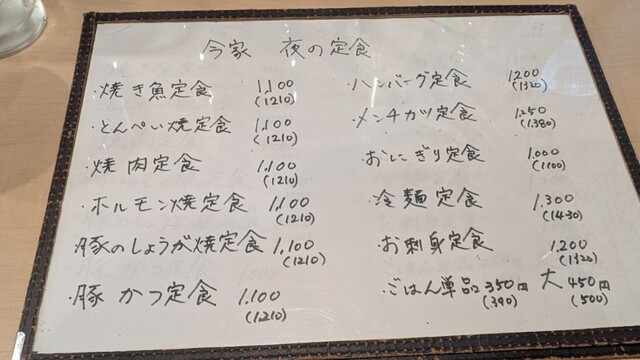 今家 夜の定食
・焼き魚定食 1,100
(1210)
・とんぺい焼定食 1,100
(1210)
・焼肉定食 1,100
(1210)
・ホルモン焼定食 1,100
(1210)
・豚のしょうが焼定食 1,100
(1210)
・豚かつ定食 1,100
(1210)
・ハンバーグ定食 1,200
(1320)
・メンチカツ定食 1,250
(1,380)
・おにぎり定食 1,000
(1100)
・冷麺定食 1,300
(1430)
・お刺身定食 1,200
(1320)
・ごはん単品 350円 大 450円
(390) (500)